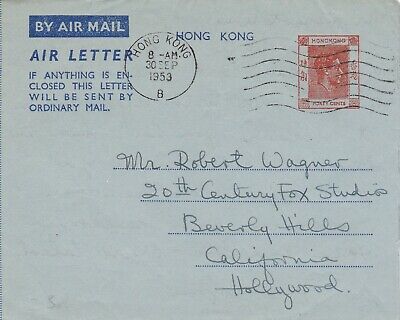 BY AIR MAIL
AIR LETTER
IF ANYTHING IS EN-
CLOSED THIS LETTER
WILL BE SENT BY
ORDINARY MAIL.
HONG KONG
8 - AM
30 SEP
1953
B
HONG KONG
HONGKONG
FORTY CENTS
Mr. Robert Wagner
20th Century Fox Studios
Beverly Hills
California
Hollywood.